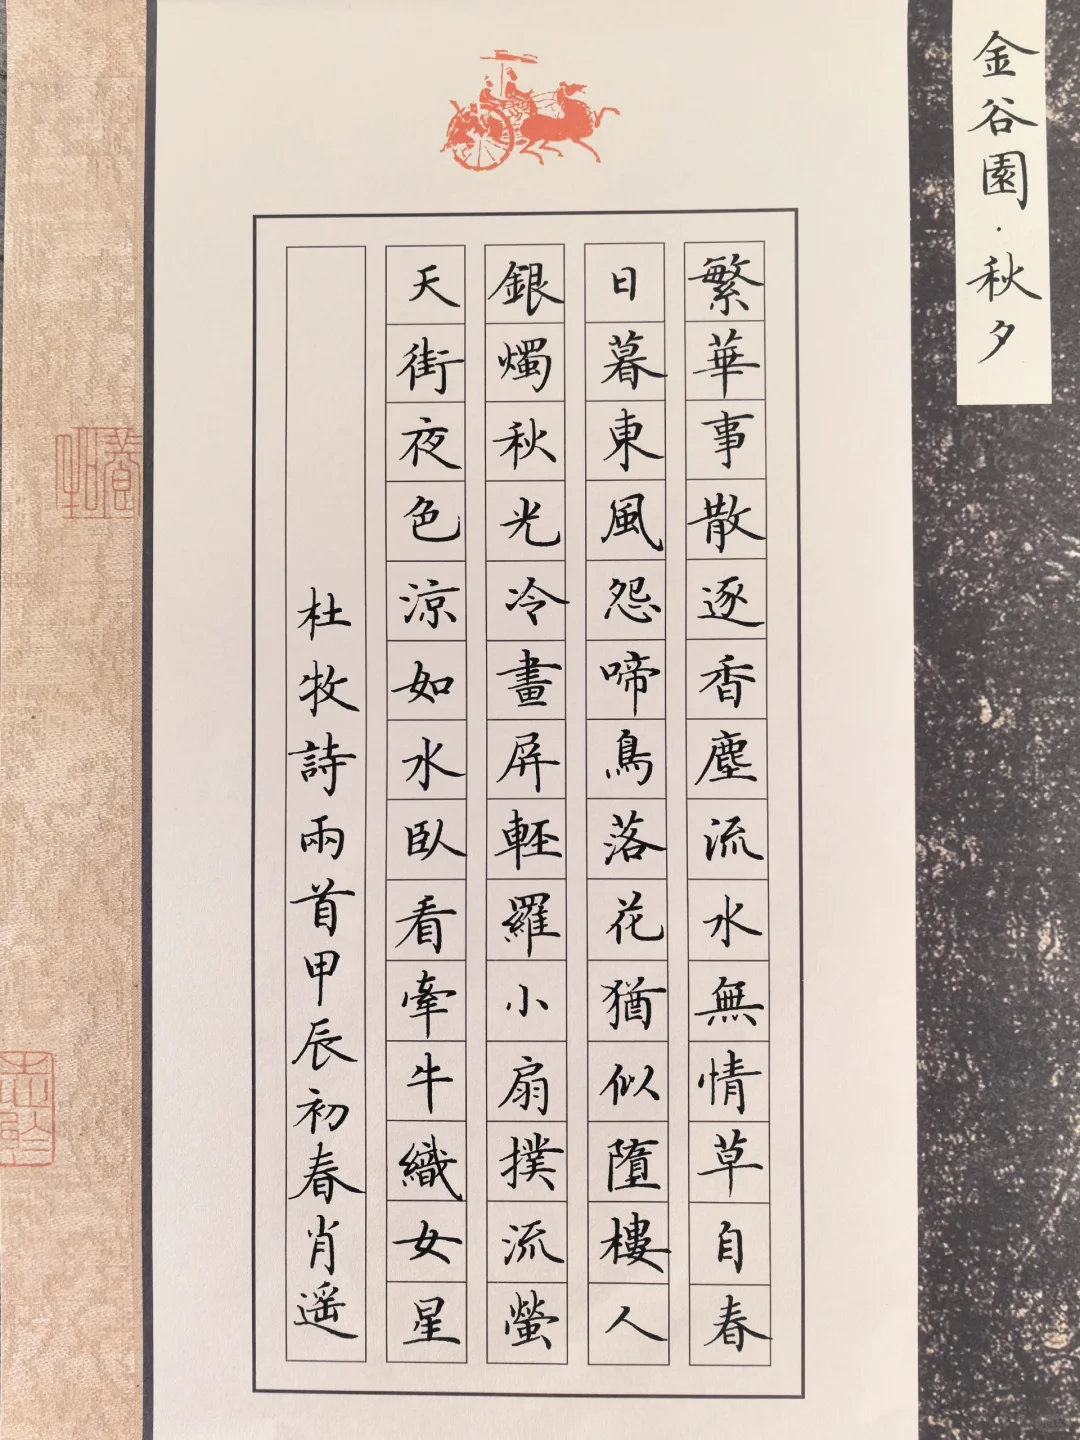 金谷園·秋夕
繁華事散逐香塵流水無情草自春
日暮東風怨啼鳥落花猶似墮樓人
銀燭秋光冷畫屏輕羅小扇撲流螢
天街夜色涼如水臥看牽牛織女星
杜牧詩兩首甲辰初春肖遥